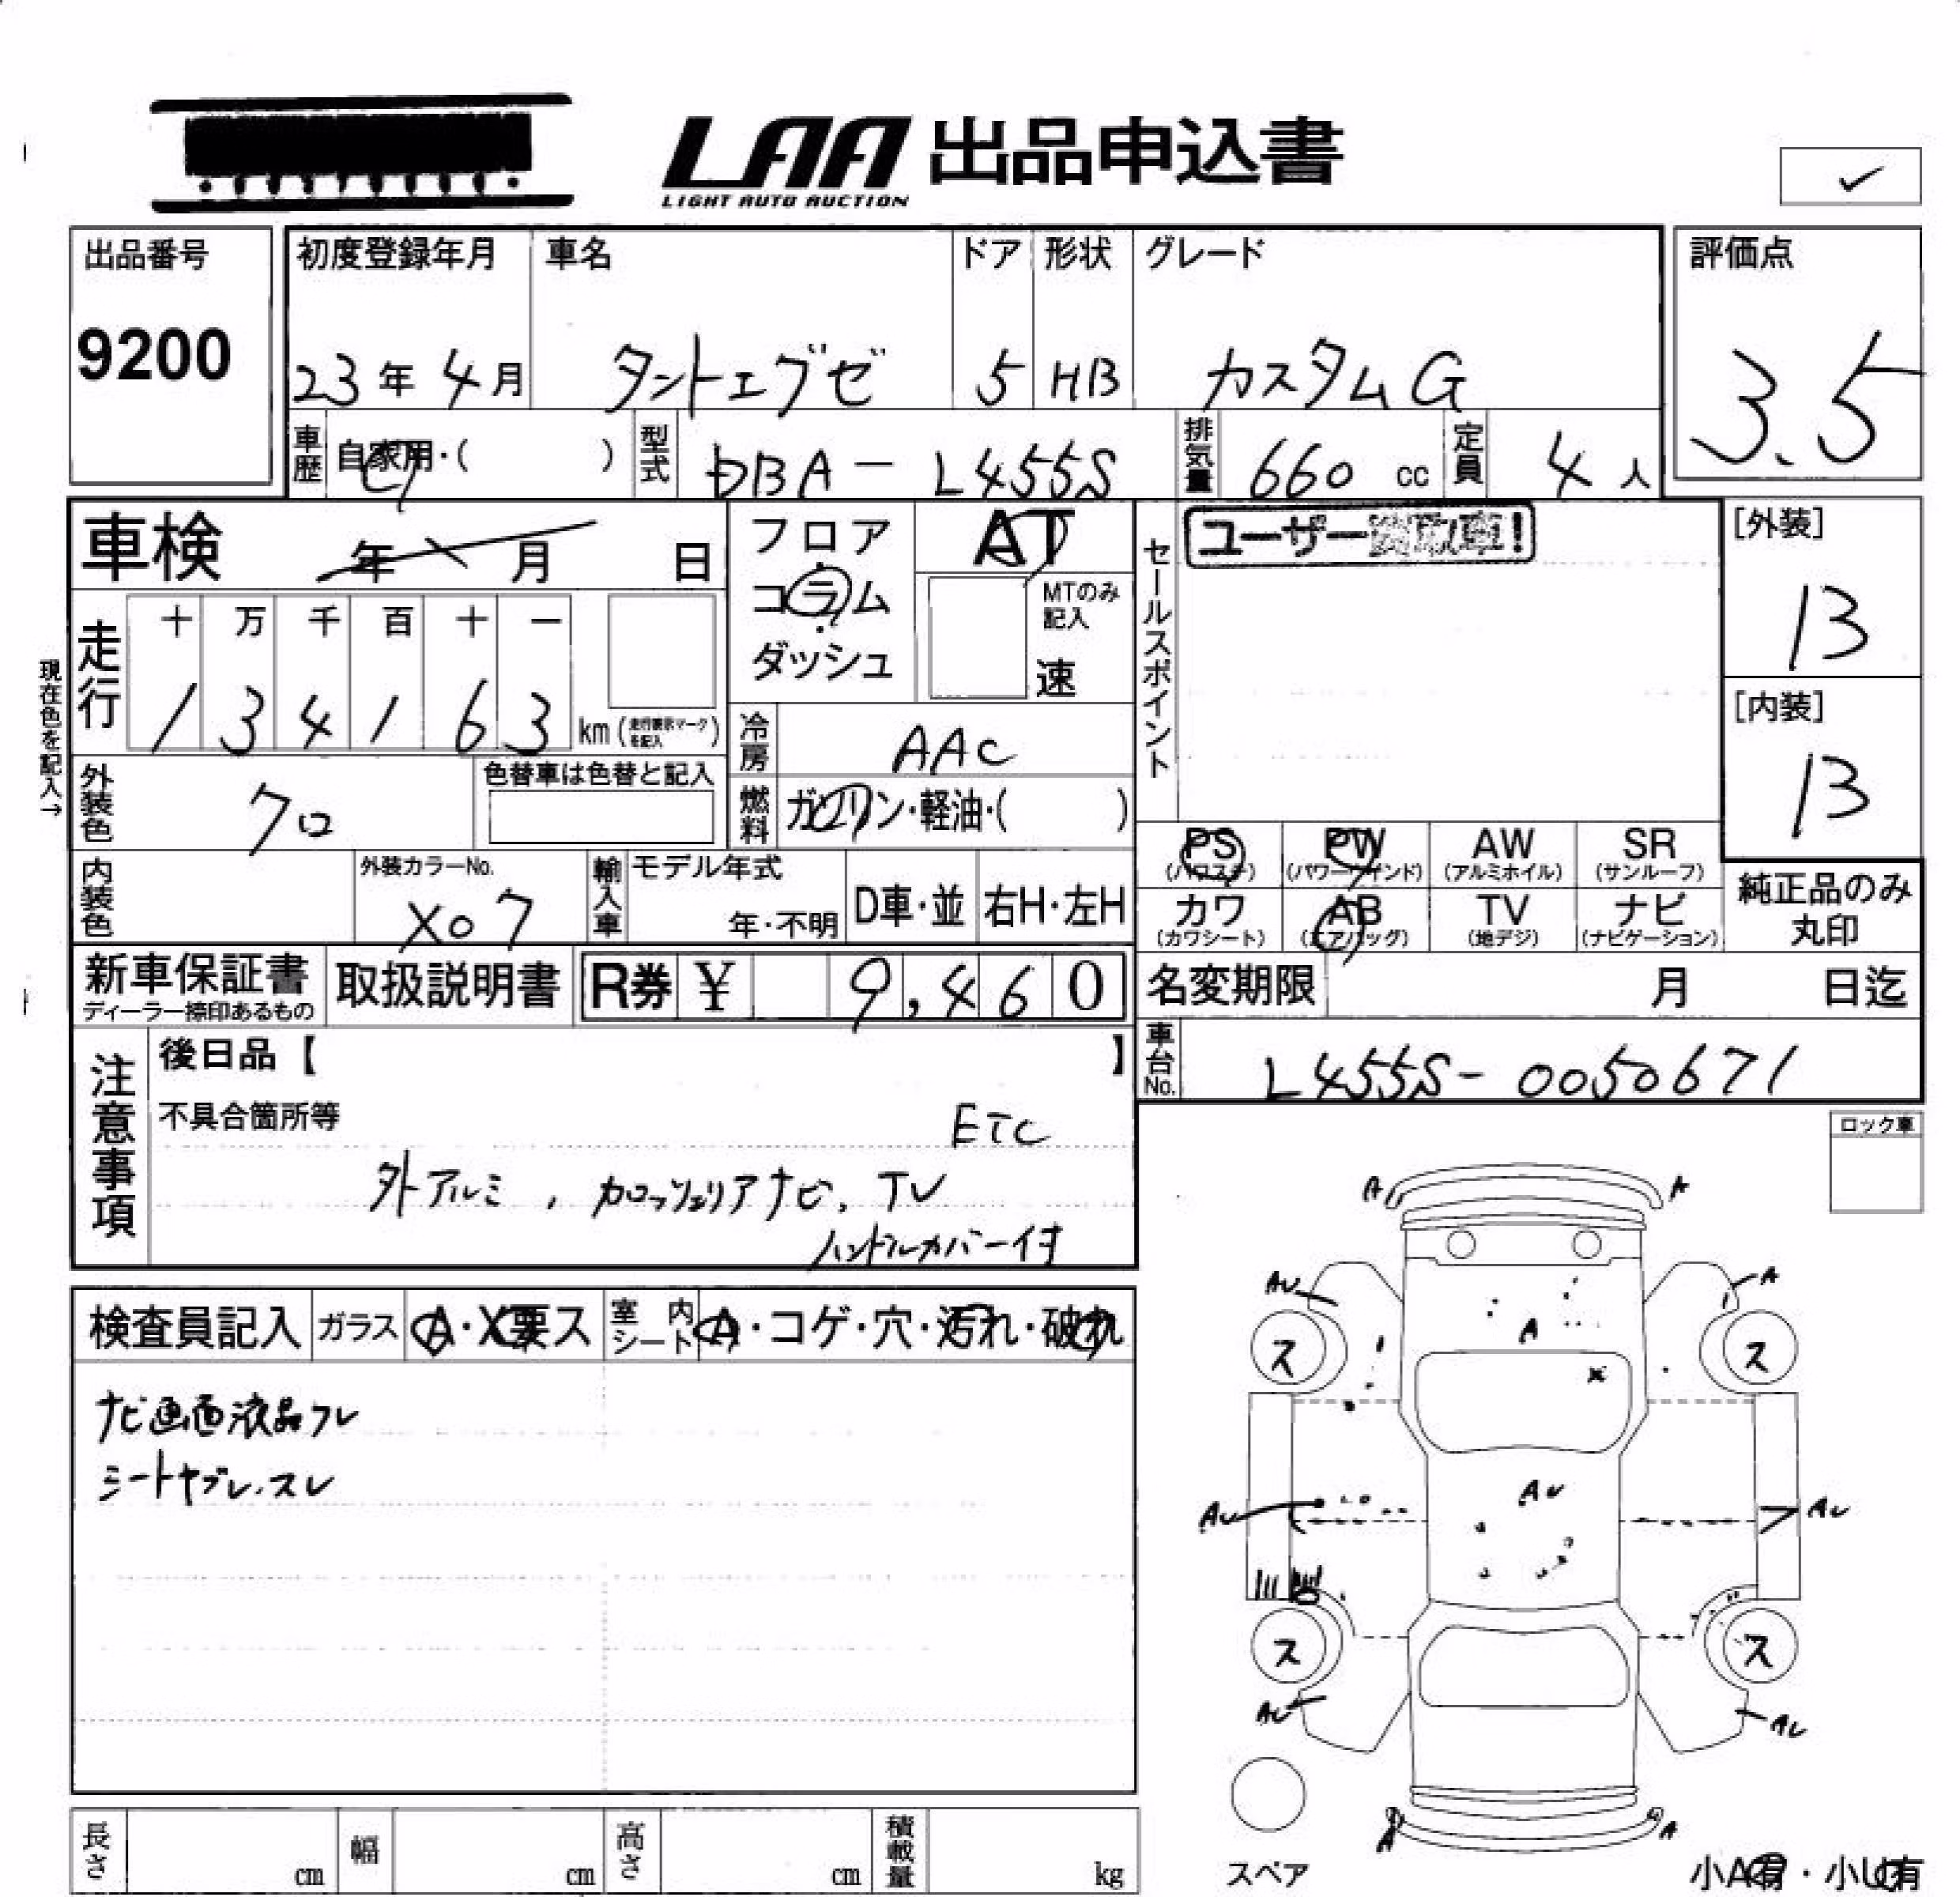 LAA 出品申込書
LIGHT AUTO AUCTION
出品番号
9200
初度登録年月
23年4月
車名
タントエグゼ
ドア
5
形状
HB
グレード
カスタムG
評価点
3.5
車歴
自家用・( )
型式
DBA-L455S
排気量
660 cc
定員
4人
車検 年 月 日
フロア
コラム
ダッシュ
AT
MTのみ記入
速
セールスポイント
ユーザー
[外装]
13
[内装]
13
現在色を記入→
走行
十 万 千 百 十 一
1 3 4 1 6 3 km (走行表示マークを記入)
冷房
AAC
外装色
クロ
色替車は色替と記入
燃料
ガソリン・軽油・( )
内装色
外装カラーNo.
X07
輸入車
モデル年式
年・不明
D車・並
右H・左H
PS (パワステ)
PW (パワーウインド)
AW (アルミホイル)
SR (サンルーフ)
カワ (カワシート)
AB (エアバッグ)
TV (地デジ)
ナビ (ナビゲーション)
純正品のみ
丸印
新車保証書
ディーラー捺印あるもの
取扱説明書
R券 ¥ 9,460
名変期限 月 日迄
車台No.
L455S-0050671
注意事項
後日品【 】
不具合箇所等
ETC
外アルミ、カロッツェリアナビ、TV
ハンドルカバー付
ロック車
検査員記入
ガラス
A・X要ス
室内シート
A・コゲ・穴・汚れ・破れ
ナビ画面液晶フレ
シートヤブレ.スレ
A A
AU A
ス ス
A
X
AU
AU AU
ス ス
AU AU
A A
スペア
小A有・小U有
長さ cm
幅 cm
高さ cm
積載量 kg